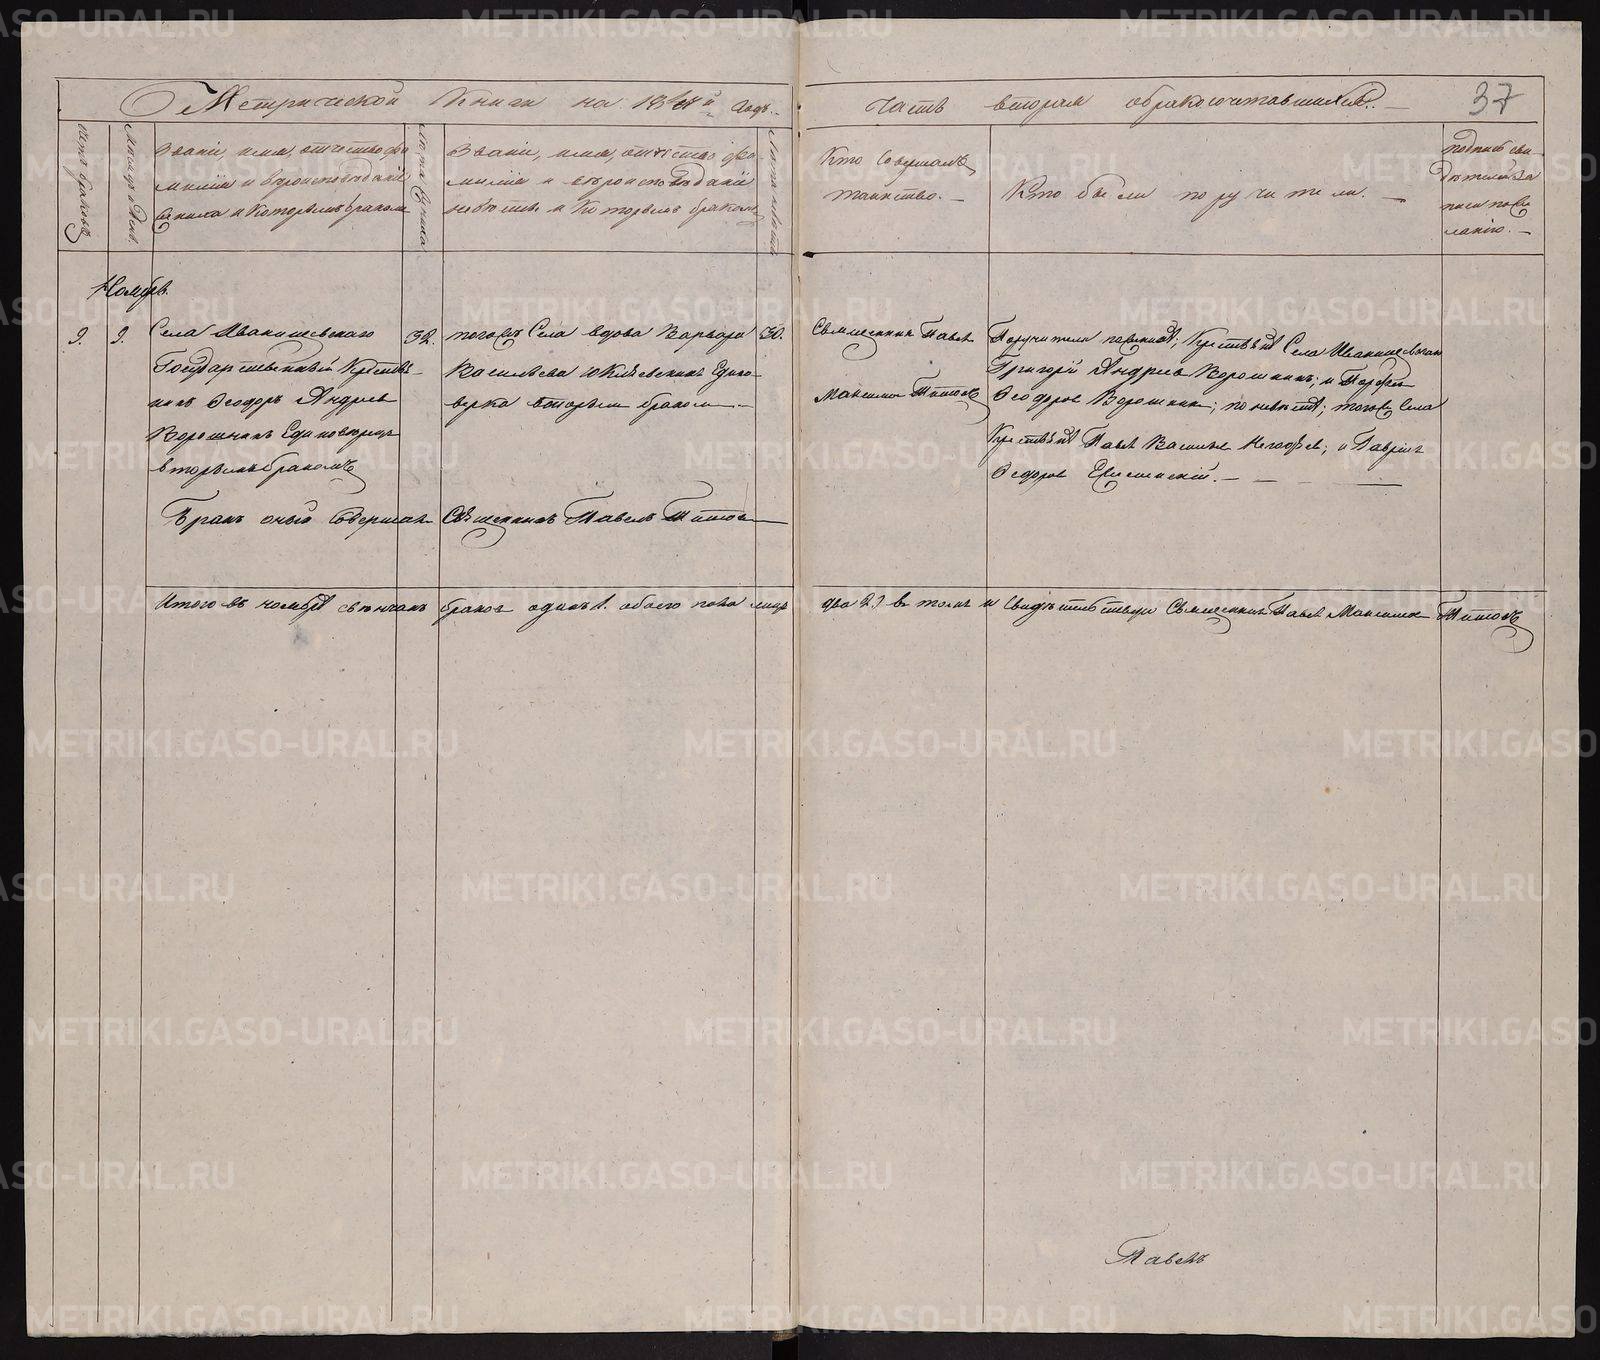 Метрической Книги на 18 й Годъ.
часть вторая о бракосочетавшихся.
37
Счетъ браковъ
Мѣсяцъ и День.
Званіе, имя, отчество фа-
миліи и вѣроисповѣданіе
жениха и которымъ бракомъ
Лѣта жениха
Званіе, имя, отчество фа-
миліи и вѣроисповѣданіе
невѣсты и которымъ бракомъ
Лѣта невѣсты
Кто совершалъ
таинство.
Кто были поручители.
подпись сви-
дѣтелей за
писи по же
ланію.
Ноябрь
9. 9.
Села Иванищевскаго
Государственный Крестья-
нинъ Ѳеодоръ Андреевъ
Ворошнинъ Единовѣрецъ
вторымъ бракомъ
32.
тогожъ Села вдова Варвара
Васильева Единo-
верка вторымъ бракомъ
30.
Священникъ Павелъ
Максимовъ Титовъ
Поручители по женихѣ; Крестьяне Села Иванищевскаго
Григорій Андреевъ Ворошнинъ; и
Ѳеодоровъ Ворошнинъ; по невѣстѣ; тогожъ Села
Крестьяне Павелъ Васильевъ и Гавріилъ
Ѳедоровъ
Бракъ оный совершалъ Священникъ Павелъ Титовъ
Итого въ ноябрѣ свѣнчанъ бракъ одинъ 1. обоего пола лицъ два 2.) въ томъ и свидѣтельствую Священникъ Павелъ Максимовъ Титовъ
Павелъ
METRIKI.GASO-URAL.RU